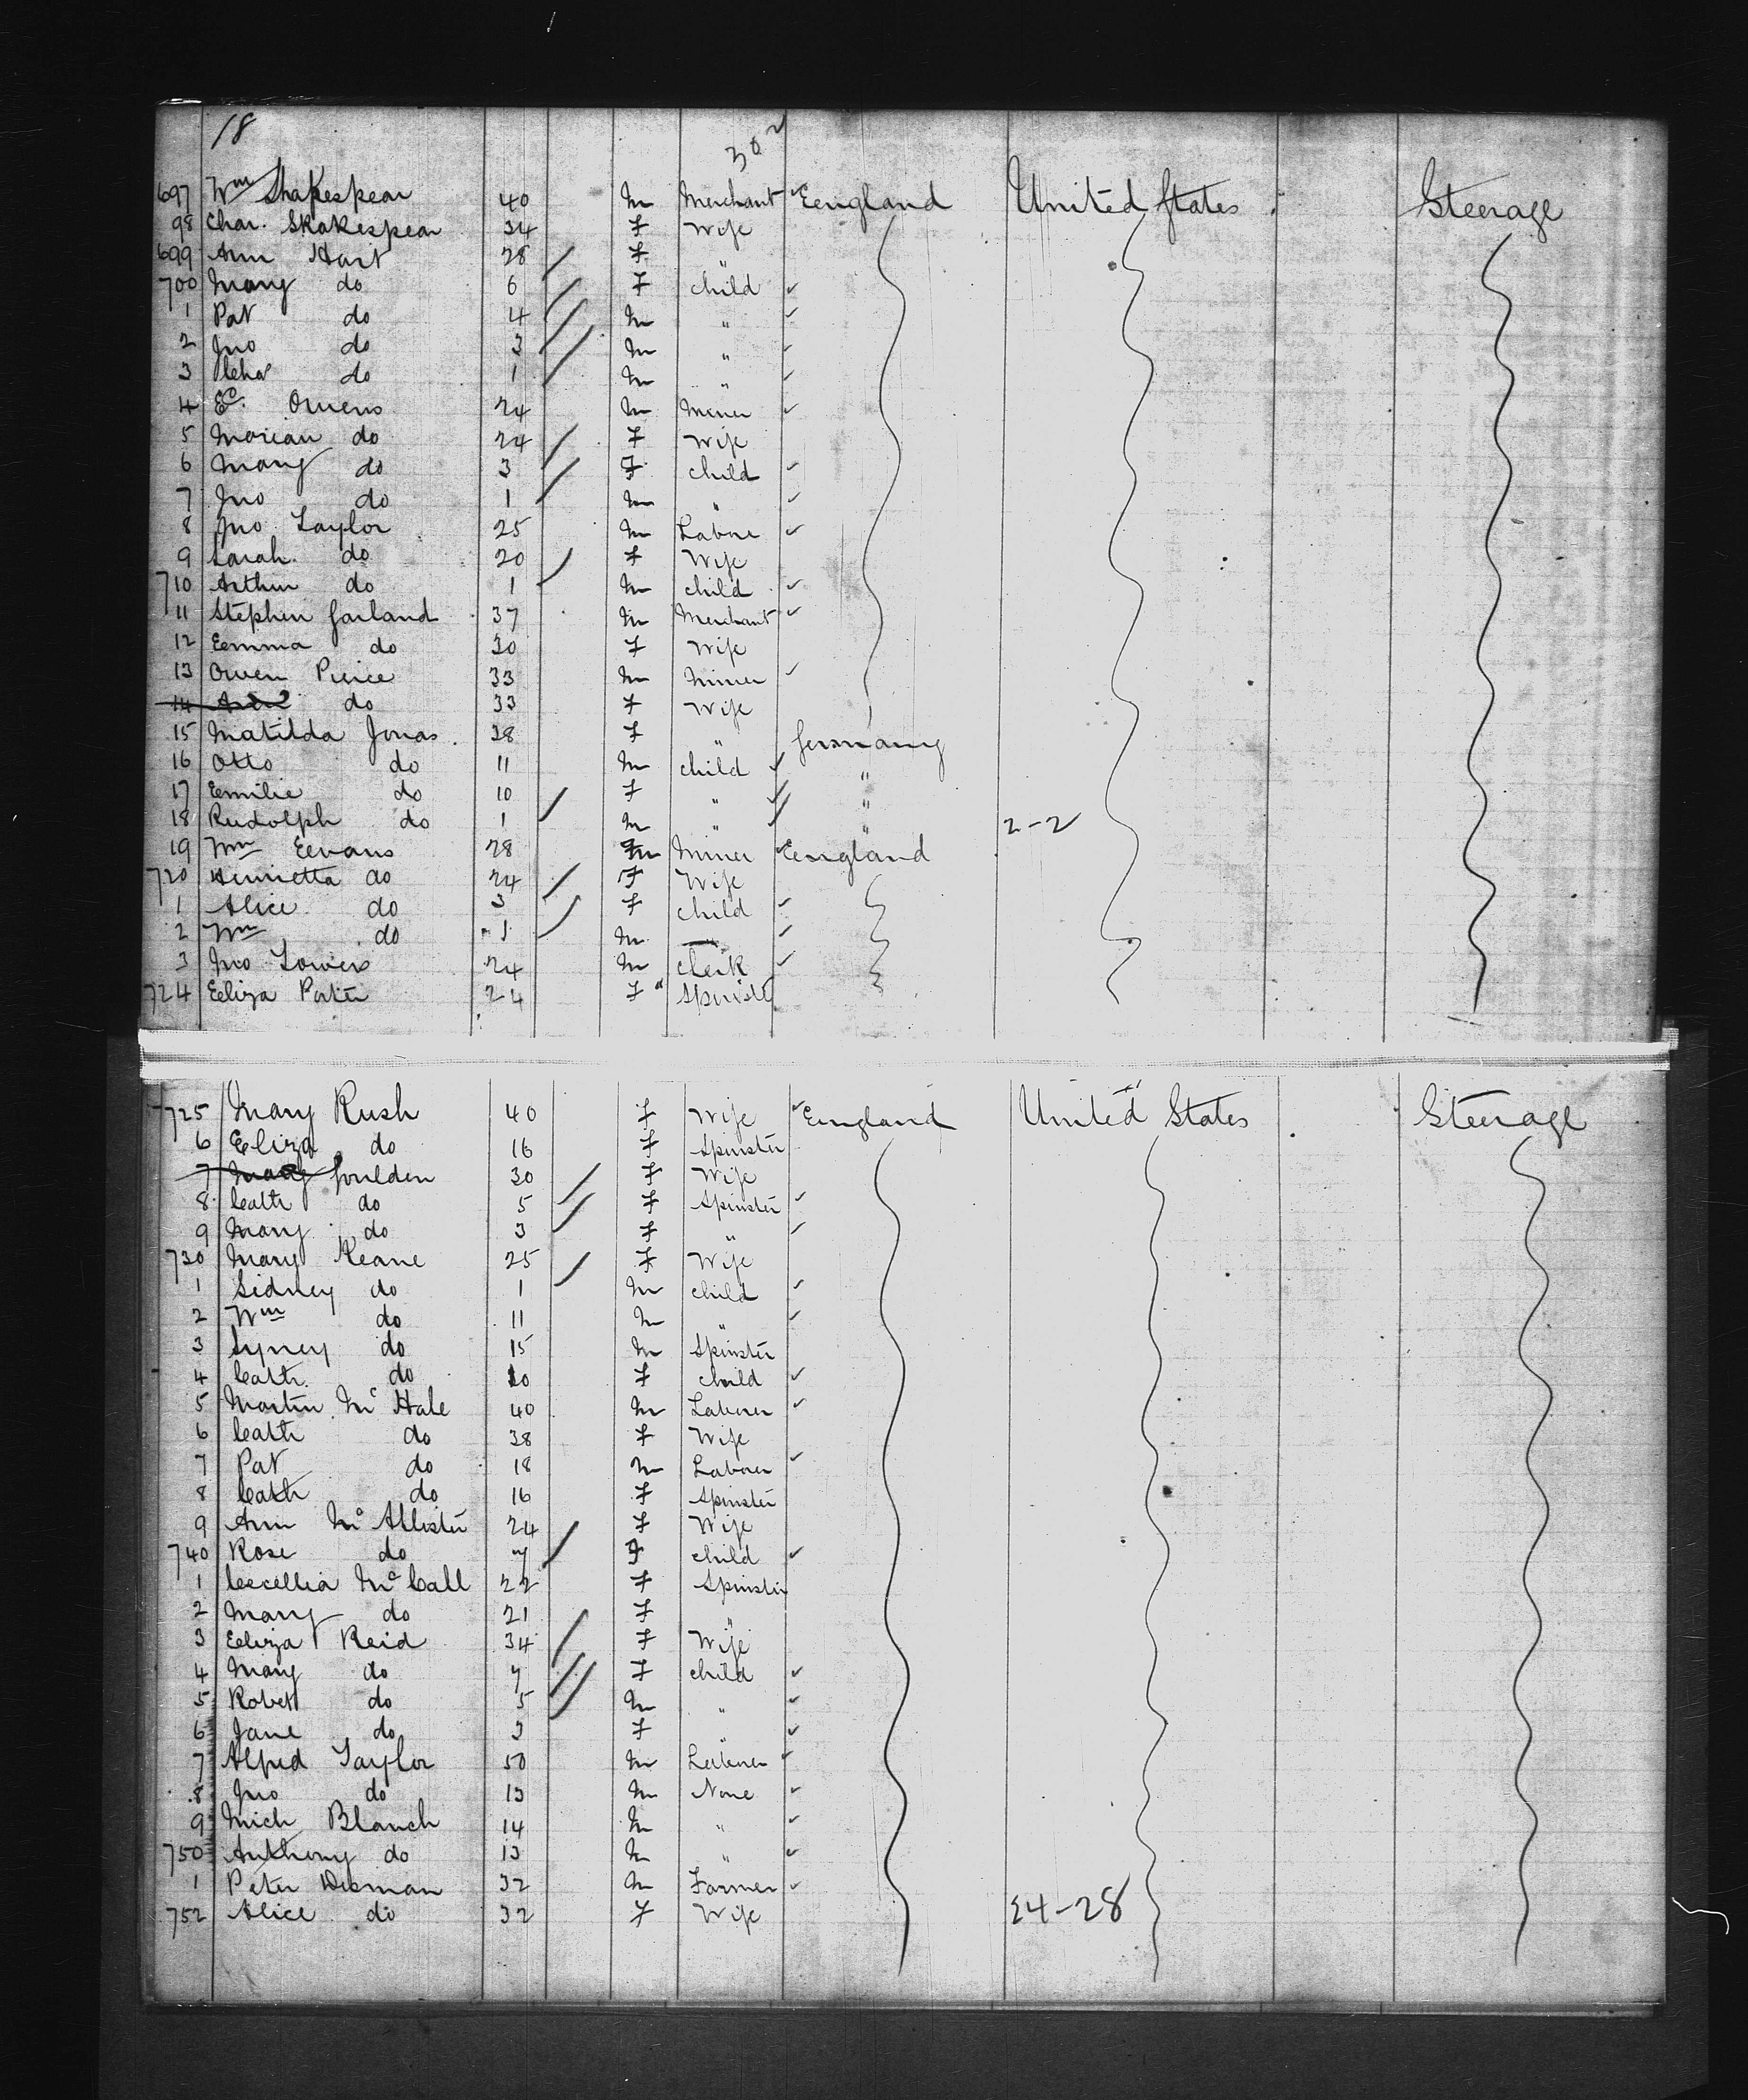 18
30
697 Wm Shakespear 40 M Merchant England United States Steerage
98 Char. Skakespear 34 F Wife
699 Ann Hart 28 F "
700 Mary do 6 F Child
1 Pat do 4 M "
2 Jno do 3 M "
3 do 1 M "
4 Ed. Owens 24 M Miner
5 Morian do 24 F Wife
6 Mary do 3 F Child
7 Jno do 1 M "
8 Jno Taylor 25 M Labore
9 Sarah do 20 F Wife
710 Arthur do 1 M Child
11 Stephen Garland 37 M Merchant
12 Eemma do 30 F Wife
13 Owen Pierce 33 M Miner
14 do 33 F Wife
15 Matilda Jonas 38 F " Germany
16 Otto do 11 M Child "
17 Eemilie do 10 F " "
18 Rudolph do 1 M " " 2-2
19 Wm Eevans 28 M Miner Eengland
720 Henrietta do 24 F Wife
1 Alice do 3 F Child
2 Wm do 1 M "
3 Jno Towers 24 M Clerk
724 Eeliza Porter 24 F Spinster
725 Mary Rush 40 F Wife Eengland United States Steerage
6 Eliza do 16 F Spinster
7 Mary Goulden 30 F Wife
8 Cath do 5 F Spinster
9 Mary do 3 F "
730 Mary Keane 25 F Wife
1 Sidney do 1 M Child
2 Wm do 11 M "
3 Syney do 15 M Spinster
4 Cath. do 10 F Child
5 Martin Mc Hale 40 M Laborer
6 Cath do 38 F Wife
7 Pat do 18 M Laborer
8 Cath do 16 F Spinster
9 Ann Mc Allister 24 F Wife
740 Rose do 7 F Child
1 Cecellia Mc Call 22 F Spinster
2 Mary do 21 F "
3 Eeliza Reid 34 F Wife
4 Mary do 7 F Child
5 Robert do 5 M "
6 Jane do 3 F "
7 Alfred Taylor 50 M Laborer
8 Jno do 13 M None
9 Mich Blanch 14 M "
750 Anthony do 13 M "
1 Peter Disman 32 M Farmer
752 Alice do 32 F Wife 24-28